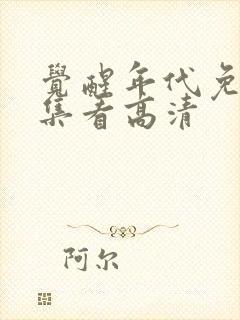 覺醒年代免
集看高清
阿尔